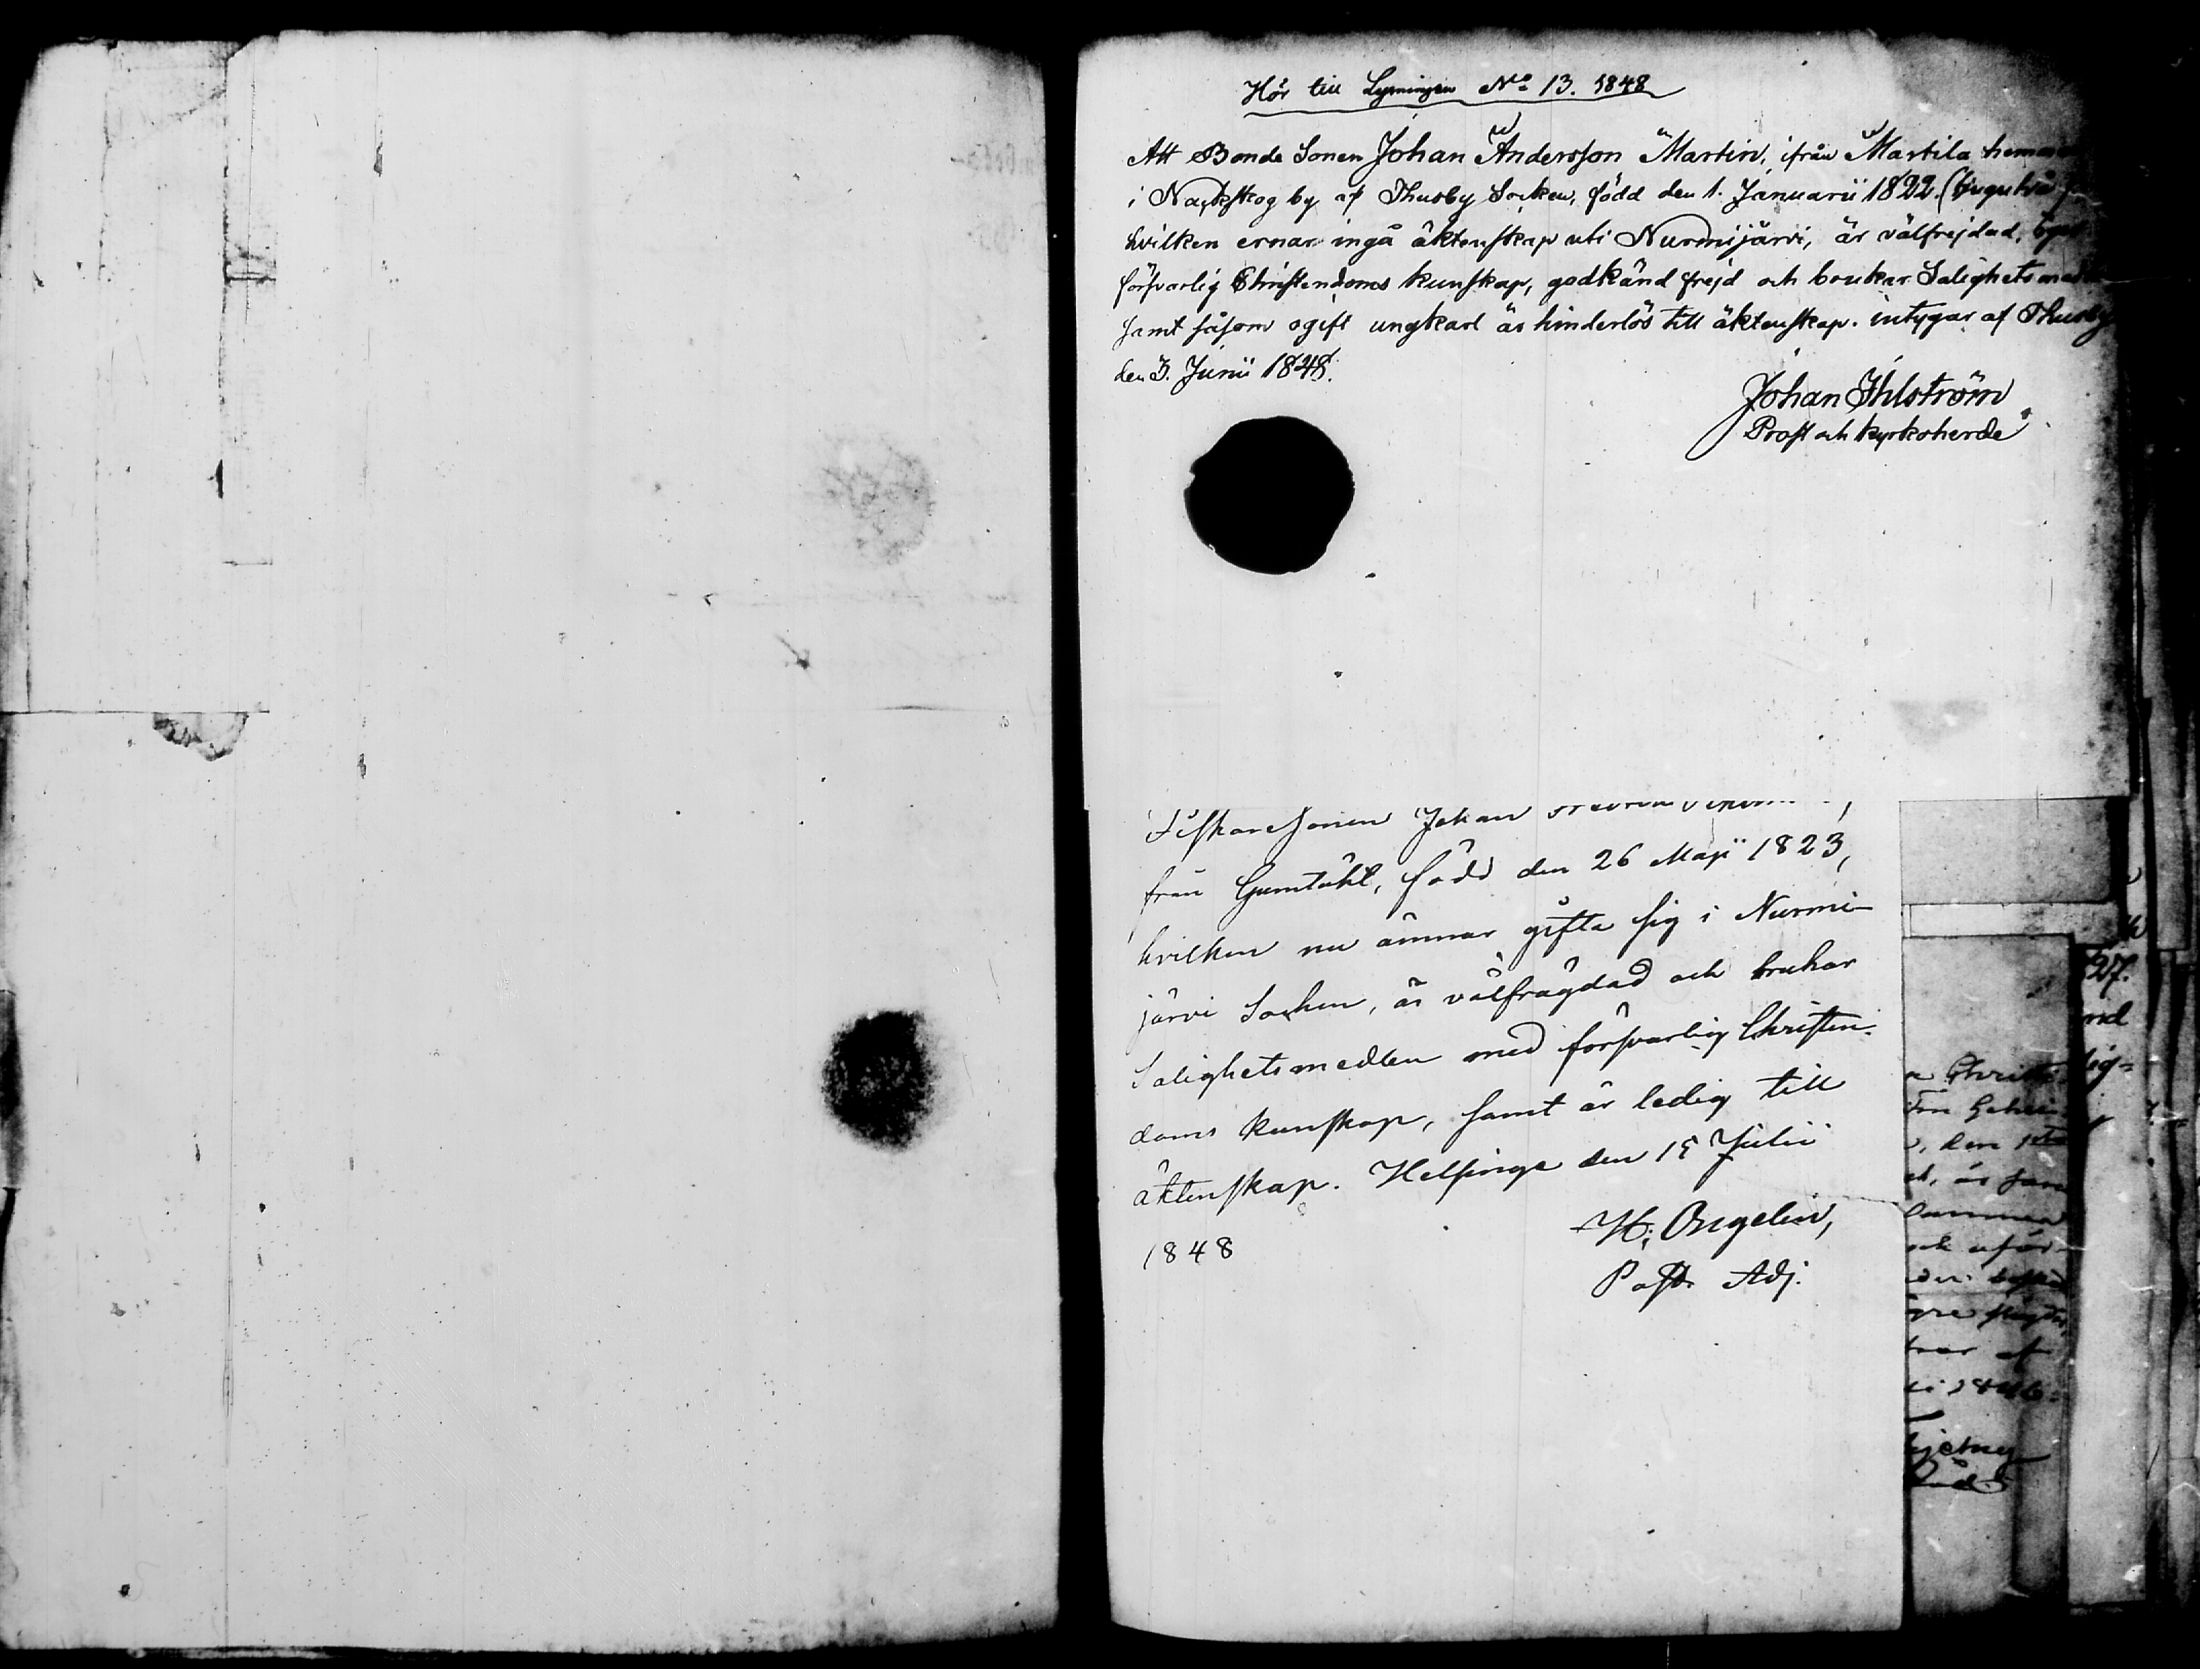 Hör till Lysningen No 13. 1848
Att Bonde Sonen Johan Andersson Martin, ifrån Martila
i Nackskog by af Thusby Socken, född den 1. Januarii 1822 (tjugutvå
hvilken ernar ingå äktenskap uti Nurmijärvi, är välfrejdad, eger
försvarlig Christendoms kunskap, godkänd frejd och brukar Salighetsmedlen
samt såsom ogift ungkarl är hinderlös till äktenskap. intygar af Thusby
den 3. Junii 1848.
Johan Ihlström
Prost och Kyrkoherde
Fiskaresonen Johan
från Gumtäkt, född den 26 Maji 1823,
hvilken nu ämnar gifta sig i Nurmi-
järvi Sochen, är välfrägdad och brukar
Salighetsmedlen med försvarlig Christen-
doms kunskap, samt är ledig till
äktenskap. Helsinge den 15 Julii
1848
H. Ongelin,
Past. Adj.
27.
nd
lig-
, den 1
, är
och
af